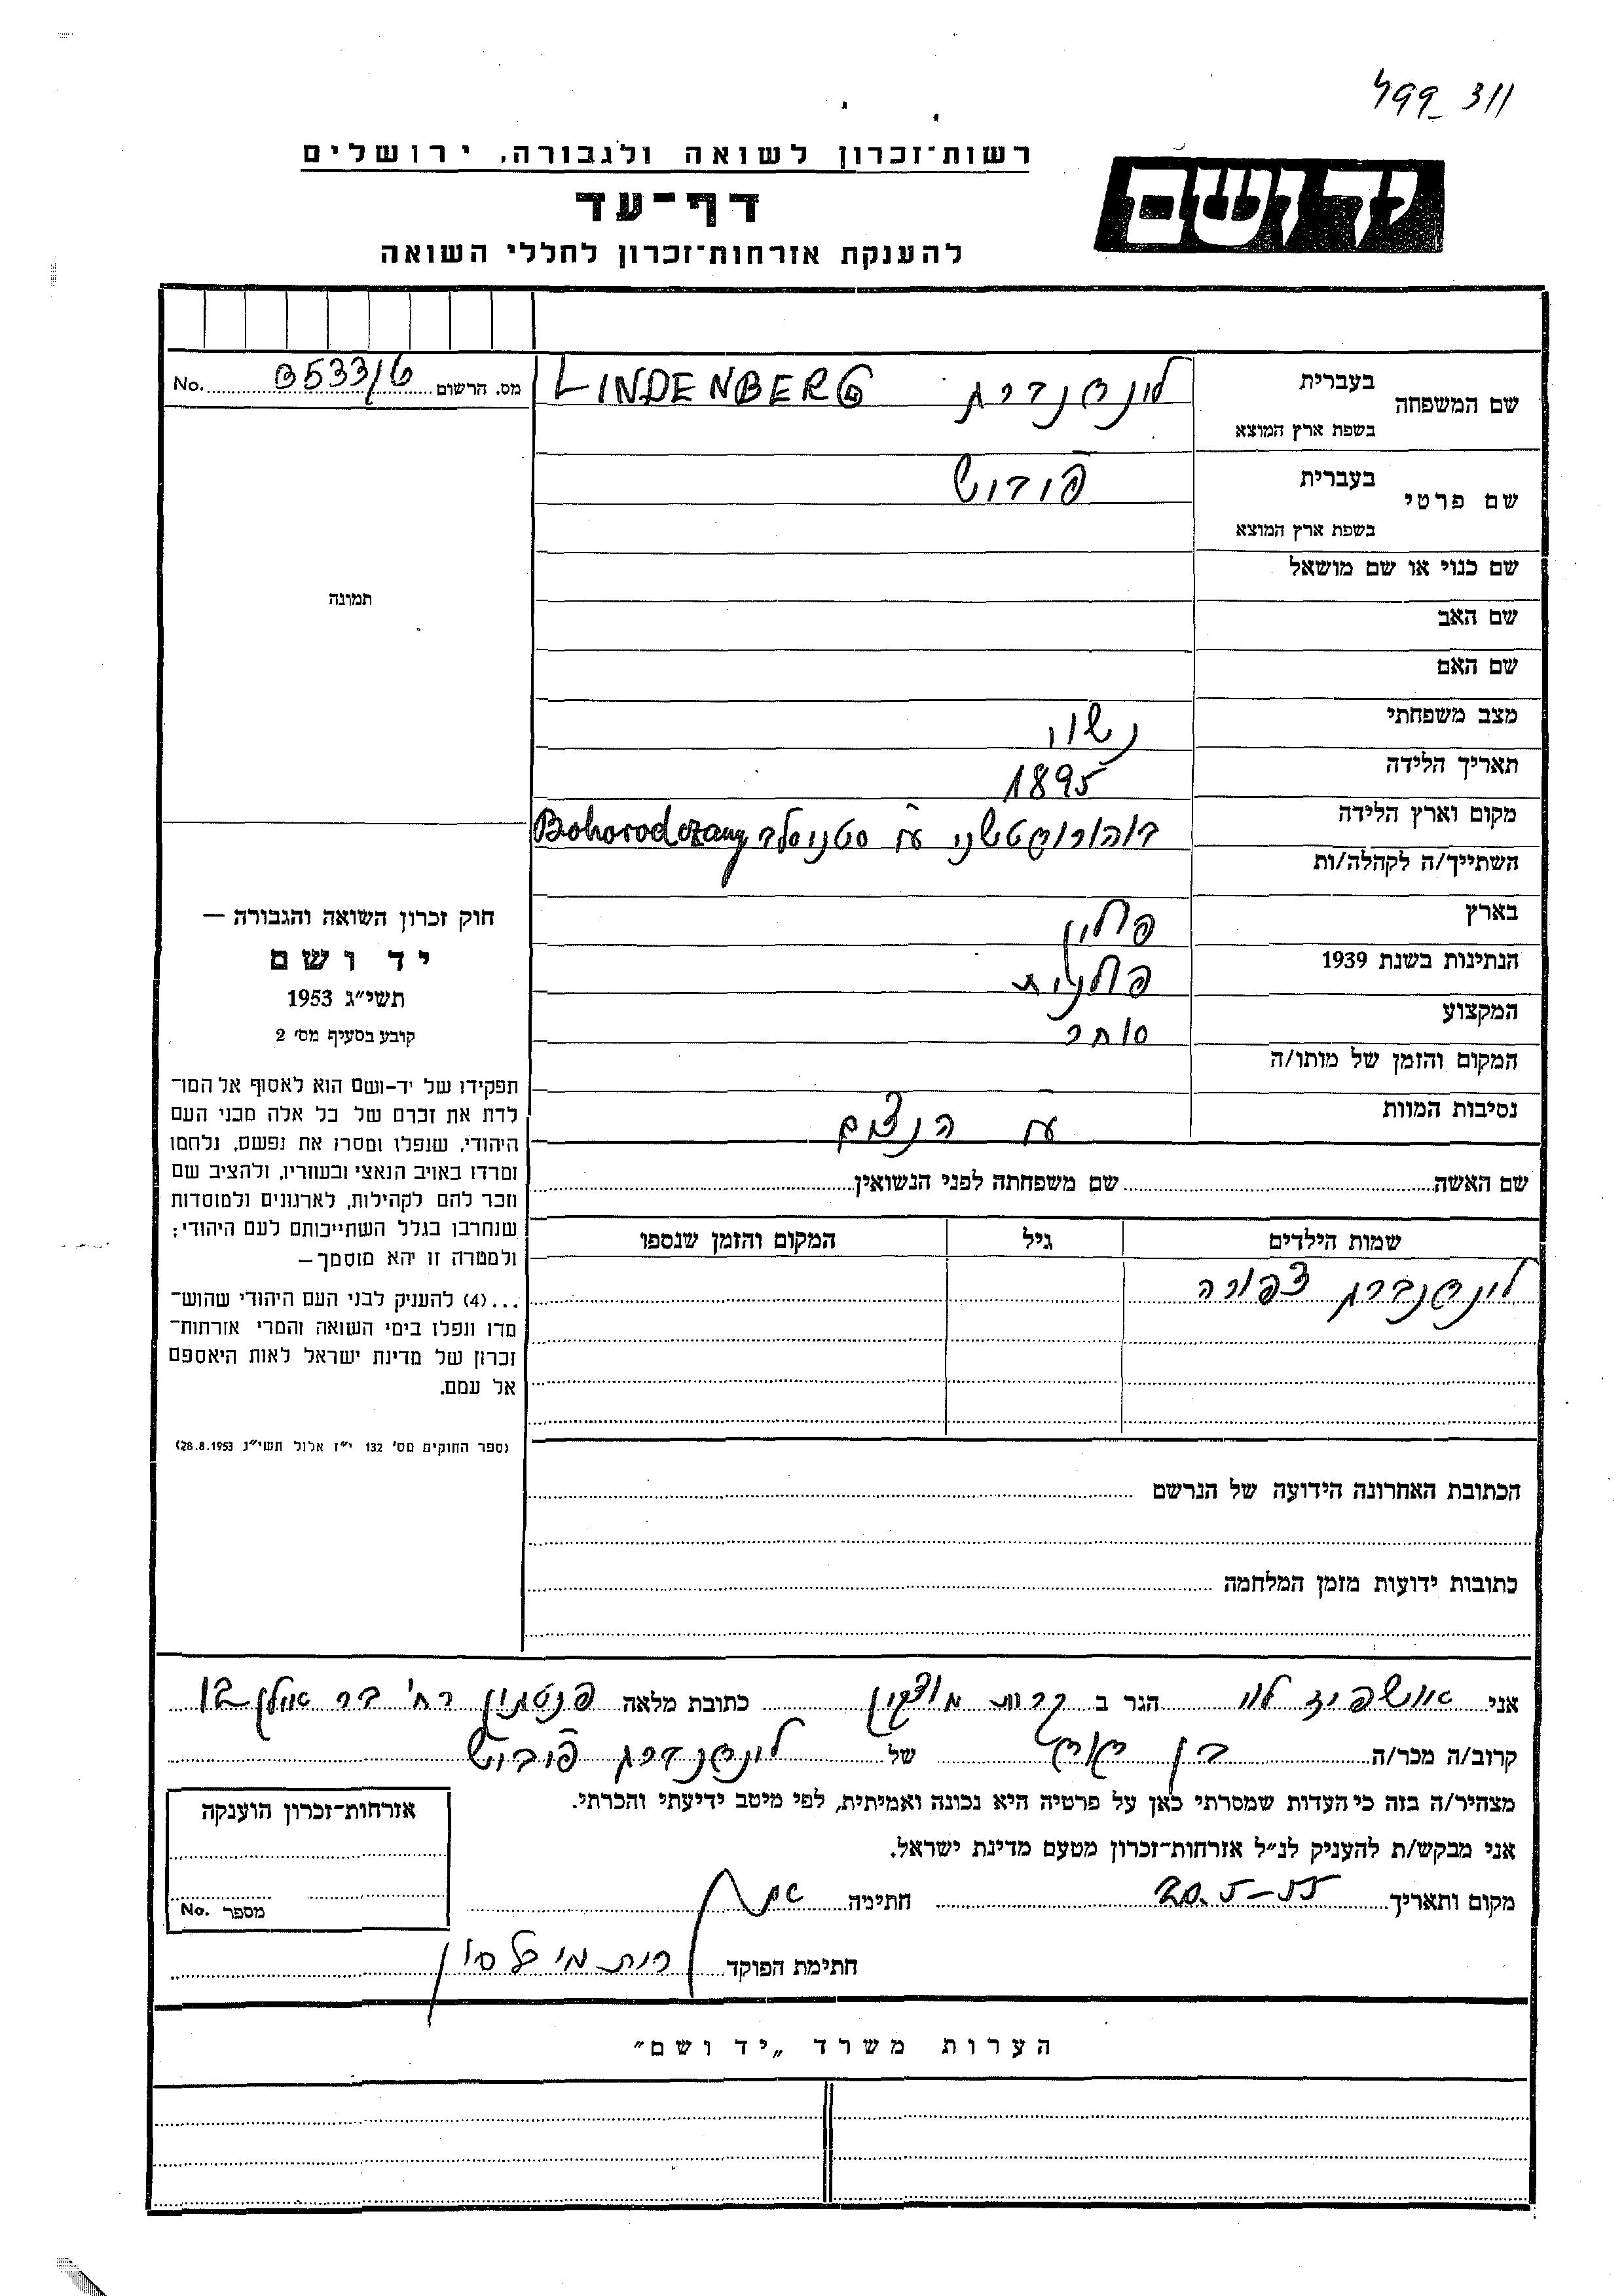 499_ 311
יד ושם
רשות־זכרון לשואה ולגבורה, ירושלים
דף־עד
להענקת אזרחות־זכרון לחללי השואה
שם המשפחה בעברית לינדנברג LINDENBERG
בשפת ארץ המוצא
מס. הרשום No. B533/6
שם פרטי בעברית פודוש
בשפת ארץ המוצא
שם כנוי או שם מושאל
תמונה
שם האב
שם האם
מצב משפחתי נשוי
תאריך הלידה 1895
מקום וארץ הלידה ע"י Bohorodczany
השתייך/ה לקהלה/ות
בארץ פולין
הנתינות בשנת 1939 פולנית
המקצוע סוחר
המקום והזמן של מותו/ה
נסיבות המוות ע"י הנאצים
חוק זכרון השואה והגבורה —
יד ושם
תשי״ג 1953
קובע בסעיף מס׳ 2
תפקידו של יד-ושם הוא לאסוף אל המו־
לדת את זכרם של כל אלה מבני העם
היהודי, שנפלו ומסרו את נפשם, נלחמו
ומרדו באויב הנאצי ובעוזריו, ולהציב שם
וזכר להם לקהילות, לארגונים ולמוסדות
שנחרבו בגלל השתייכותם לעם היהודי;
ולמטרה זו יהא מוסמך —
...(4) להעניק לבני העם היהודי שהוש־
מדו ונפלו בימי השואה והמרי אזרחות־
זכרון של מדינת ישראל לאות היאספם
אל עמם.
(ספר החוקים מס׳ 132 י״ז אלול תשי״ג 28.8.1953)
שם האשה שם משפחתה לפני הנשואין
שמות הילדים גיל המקום והזמן שנספו
לינדנברג צפורה
הכתובת האחרונה הידועה של הנרשם
כתובות ידועות מזמן המלחמה
אני אושפיז הגר ב קרית מוצקין כתובת מלאה רח' בר אילן 12
קרוב/ה מכר/ה בן דוד של לינדנברג
מצהיר/ה בזה כי העדות שמסרתי כאן על פרטיה היא נכונה ואמיתית, לפי מיטב ידיעתי והכרתי.
אני מבקש/ת להעניק לנ״ל אזרחות־זכרון מטעם מדינת ישראל.
מקום ותאריך 20.5-55 חתימה
חתימת הפוקד רות
אזרחות־זכרון הוענקה
מספר No.
הערות משרד „יד ושם״